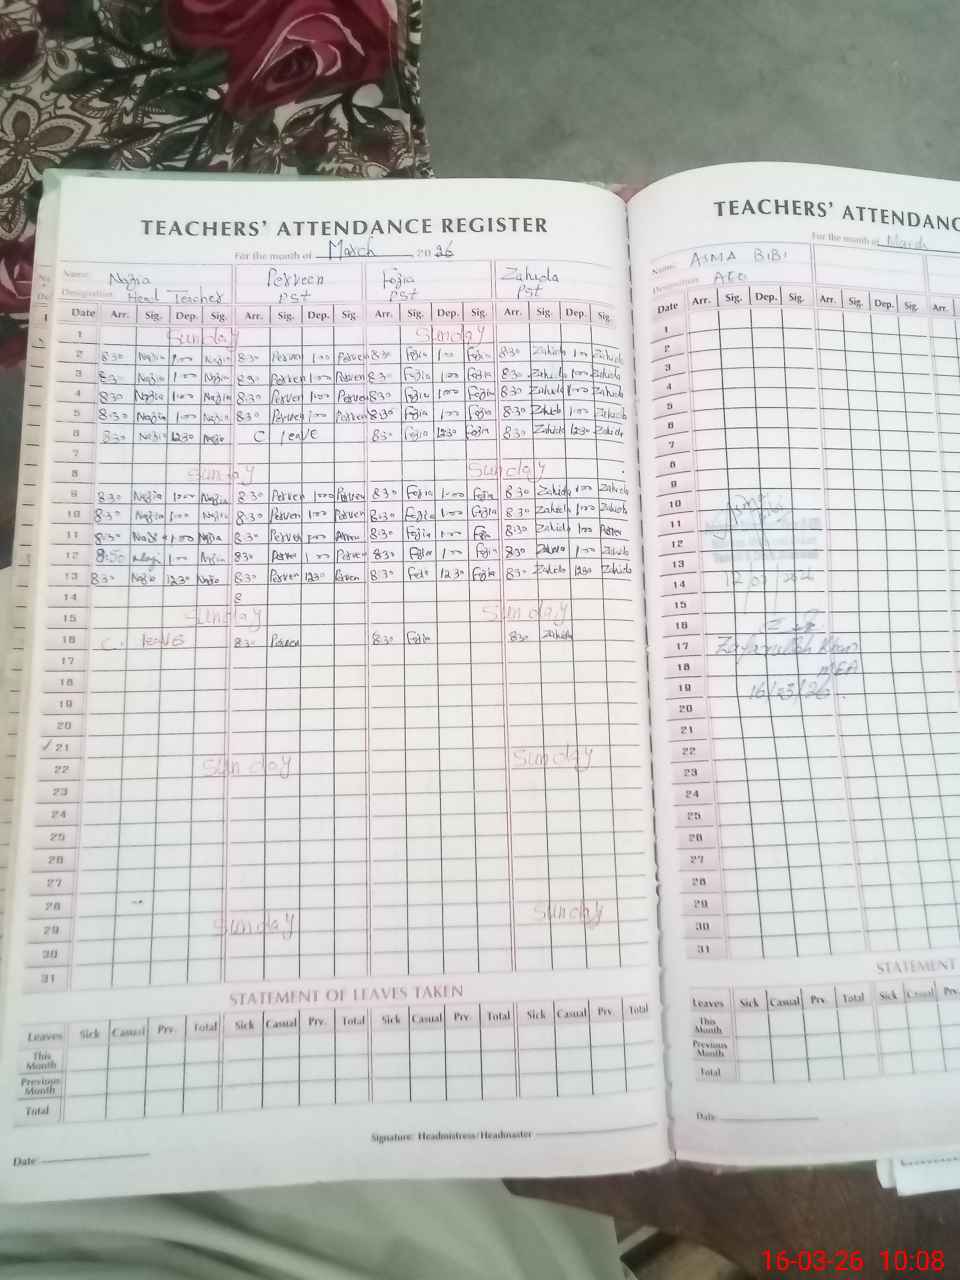 TEACHERS' ATTENDANCE REGISTER
For the month of March 2026
Name: Nazia Perveen Fozia Zahida
Designation Head Teacher PST PST PST
Date Arr. Sig. Dep. Sig. Arr. Sig. Dep. Sig. Arr. Sig. Dep. Sig. Arr. Sig. Dep. Sig.
1 Sunday Sunday
2 8:30 Nazia 1:00 Nazia 8:30 Perven 1:00 Perven 8:30 Fozia 1:00 Fozia 8:30 Zahida 1:00 Zahida
3 8:30 Nazia 1:00 Nazia 8:30 Perven 1:00 Perven 8:30 Fozia 1:00 Fozia 8:30 Zahida 1:00 Zahida
4 8:30 Nazia 1:00 Nazia 8:30 Perven 1:00 Perven 8:30 Fozia 1:00 Fozia 8:30 Zahida 1:00 Zahida
5 8:30 Nazia 1:00 Nazia 8:30 Perven 1:00 Perven 8:30 Fozia 1:00 Fozia 8:30 Zahida 1:00 Zahida
6 8:30 Nazia 12:30 Nazia C leave 8:30 Fozia 12:30 Fozia 8:30 Zahida 12:30 Zahida
7
8 Sunday Sunday
9 8:30 Nazia 1:00 Nazia 8:30 Perven 1:00 Perven 8:30 Fozia 1:00 Fozia 8:30 Zahida 1:00 Zahida
10 8:30 Nazia 1:00 Nazia 8:30 Perven 1:00 Perven 8:30 Fozia 1:00 Fozia 8:30 Zahida 1:00 Zahida
11 8:30 Nazia 1:00 Nazia 8:30 Perven 1:00 8:30 Fozia 1:00 8:30 Zahida 1:00
12 8:30 1:00 Nazia 8:30 Perven 1:00 Perven 8:30 Fozia 1:00 Fozia 8:30 Zahida 1:00 Zahida
13 8:30 Nazia 12:30 Nazia 8:30 Perven 12:30 Perven 8:30 12:30 Fozia 8:30 Zahida 12:30 Zahida
14 8
15 Sunday Sunday
16 C. leave 8:30 Perven 8:30 Fozia 8:30 Zahida
17
18
19
20
21
22 Sunday Sunday
23
24
25
26
27
28
29 Sunday Sunday
30
31
STATEMENT OF LEAVES TAKEN
Leaves Sick Casual Prv. Total Sick Casual Prv. Total Sick Casual Prv. Total Sick Casual Prv. Total
This Month
Previous Month
Total
Signature: Headmistress/Headmaster
Date
TEACHERS' ATTENDANC
For the month of March
Name: ASMA BIBI
Designation AEO
Date Arr. Sig. Dep. Sig. Arr. Sig. Dep. Sig. Arr
1
2
3
4
5
6
7
8
9
10
11
12
13
14 12/03/2026
15
16
17 Zafarullah Khan
18 MEA
19 16/03/26
20
21
22
23
24
25
26
27
28
29
30
31
STATEMENT
Leaves Sick Casual Prv. Total Sick Casual Prv.
This Month
Previous Month
Total
Date
16-03-26 10:08